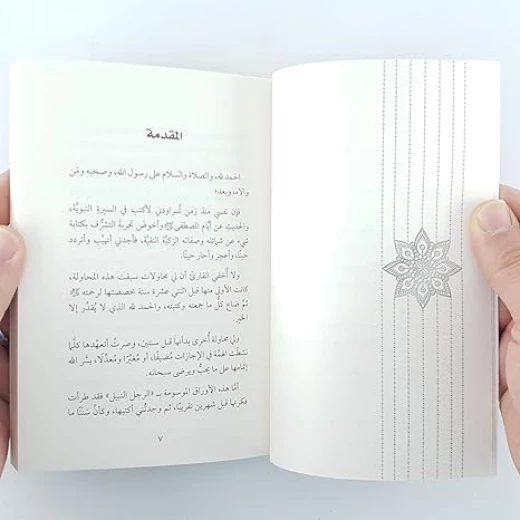 المقدمة
الحمد لله، والصلاة والسلام على رسول الله، وصحبه ومَن
والاه، وبعد؛
فإن نفسي منذ زمن تُراودني لأكتب في السيرة النبويَّة،
والحديث عن أيَّام المصطفى ﷺ وأخوض تجربة التشرُّف بكتابة
شيء عن شمائله وصفاته الزكيَّة النقيَّة، فأجدني أتهيَّب وأتردد
حينًا، وأعجز وأحار حينًا.
ولا أُخفي القارئ أن لي محاولات سبقت هذه المحاولة،
كانت الأولى منها قبل اثنتي عشرة سنة خصصتها لرحمته ﷺ
ثمَّ ضاع كلُّ ما جمعته وكتبته، والحمد لله الذي لا يُقدِّر إلا
الخير.
ولي محاولة أُخرى بدأتها قبل سنتين، وصرتُ أتعهَّدها كلَّما
نشطت الهمَّة في الإجازات مُضيفًا، أو مُغيِّرًا ومُعدِّلًا، يسَّر الله
إتمامها على ما يحبُّ ويرضى سبحانه.
أمَّا هذه الأوراق الموسومة بـ «الرجل النبيل» فقد طرأت
فكرتها قبل شهرين تقريبًا، ثم وجدتُني أكتبها، وكأنَّ سَنَنًا ما
٧